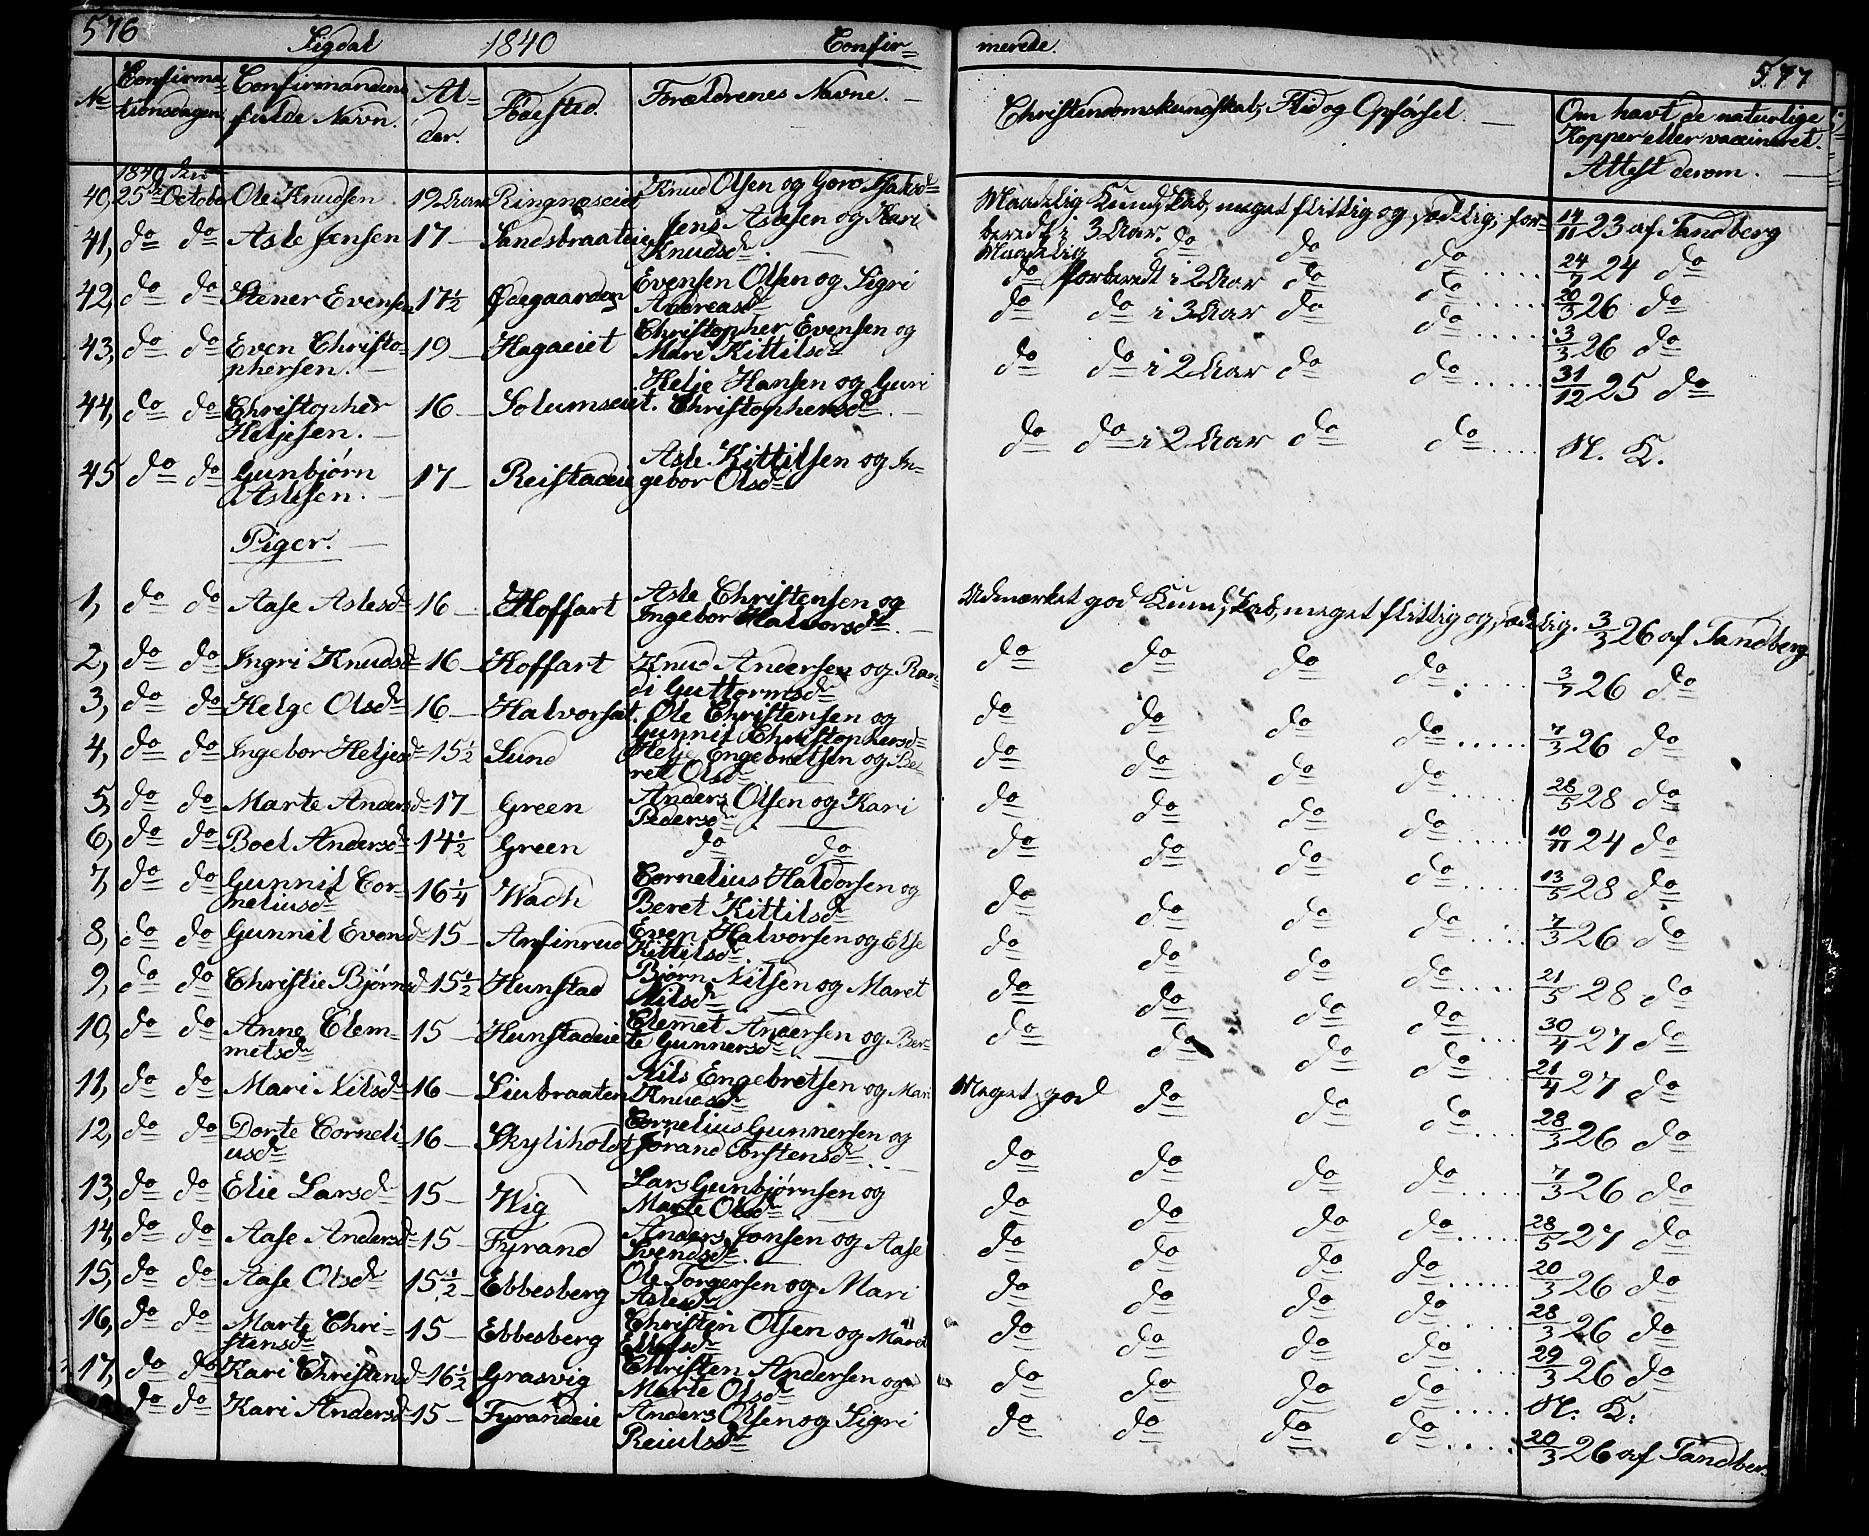 576 Sigdal 1840 Confir=
merede. 577
No Confirma= tionsdagen Confirmandens fulde Navn. Al= der. Fødested. Forældrenes Navne.
Christendomskundskab, Flid og Opførsel. Om havt de naturlige Kopper eller vaccineret. Attest derom.
1840 den
40, 25de October Ole Knudsen 19 Aar Ringnæseiet Knud Olsen og Goro Halvd Maadelig Kundskab, meget flittig og sædelig, for= beredt i 3 Aar. 14/11 23 af Tandberg
41, do do Asle Jensen 17 Sandsbraateie Jens Aslesen og Kari Knudsd. Maadelig do do do 24/7 24 do
42, do do Stener Evensen 17½ Ødegaarden Evensen Olsen og Sigri Andreasd do forberedt i 2 Aar do do 20/3 26 do
43, do do Even Christo= phersen. 19 Hagaeiet Christopher Evensen og Mari Kittilsd do do i 3 Aar do do 3/3 26 do
44, do do Christopher Heljesen. 16 Solumseiet. Helje Hansen og Guri Christophersd. do do i 2 Aar do do 31/12 25 do
45 do do Gunbjørn Aslesen. 17 Reistadeie Asle Kittilsen og In= gebor Olsd do do i 2 Aar do do N. K.
Piger.
1, do do Aase Aslesd 16 Hoffart Asle Christensen og Ingebor Halvorsd. Udmærket god Kundskab, meget flittig og sædelig. 3/3 26 af Tandberg
2, do do Ingri Knudsd 16 Hoffart Knud Andersen og Ran= di Guttormsd do do do do 3/3 26 do
3, do do Helge Olsd 16 Halvorset. Ole Christensen og Gunnil Christophersd do do do do 7/3 26 do
4, do do Ingebor Heljesd 15½ Lund Helje Engebretsen og Be= ret Olsd do do do do 28/5 28 do
5, do do Marte Andersd 17 Green Anders Olsen og Kari Pedersd do do do do 10/11 24 do
6, do do Boel Andersd 14½ Green do do do do do do 13/5 28 do
7, do do Gunnil Cor= neliusd 16¼ Wach Cornelius Haldorsen og Beret Kittilsd do do do do 7/3 26 do
8, do do Gunnil Evensd 15 Anfinrud Even Halvorsen og Else Kittilsd do do do do 21/5 28 do
9, do do Christie Bjørnsd 15½ Hunstad Bjørn Nilsen og Maret Nilsd do do do do 30/4 27 do
10, do do Anne Clem= metsd 15 Hunstadeie Clemet Andersen og Ber= te Gunnersd do do do do 21/4 27 do
11, do do Mari Nilsd 16 Liebraaten Nils Engebretsen og Mari Knudsd Meget god do do do 28/3 26 do
12, do do Dorte Corneli= usd 16 Skyliholdt Cornelius Gunnersen og Jørand Torstensd. do do do do 7/3 26 do
13, do do Elie Larsd 15 Wig Lars Gunbjørnsen og Marte Olsd do do do do 28/5 27 do
14, do do Aase Andersd 15 Fyrand Anders Jonsen og Aase Svendsd. do do do do 20/3 26 do
15, do do Aase Olsd 15½ Ebbesberg Ole Torgersen og Mari Aslesd do do do do 28/3 26 do
16, do do Marte Chri= stensd 15 Ebbesberg Christen Olsen og Maret Ellefsd do do do do 29/3 26 do
17, do do Kari Christensd 16½ Grasvig Christen Andersen og Marte Olsd do do do do N. K.
do do Kari Andersd 15 Fyrandeie Anders Olsen og Sigri Reiersd do do do do 20/3 26 af Tandber